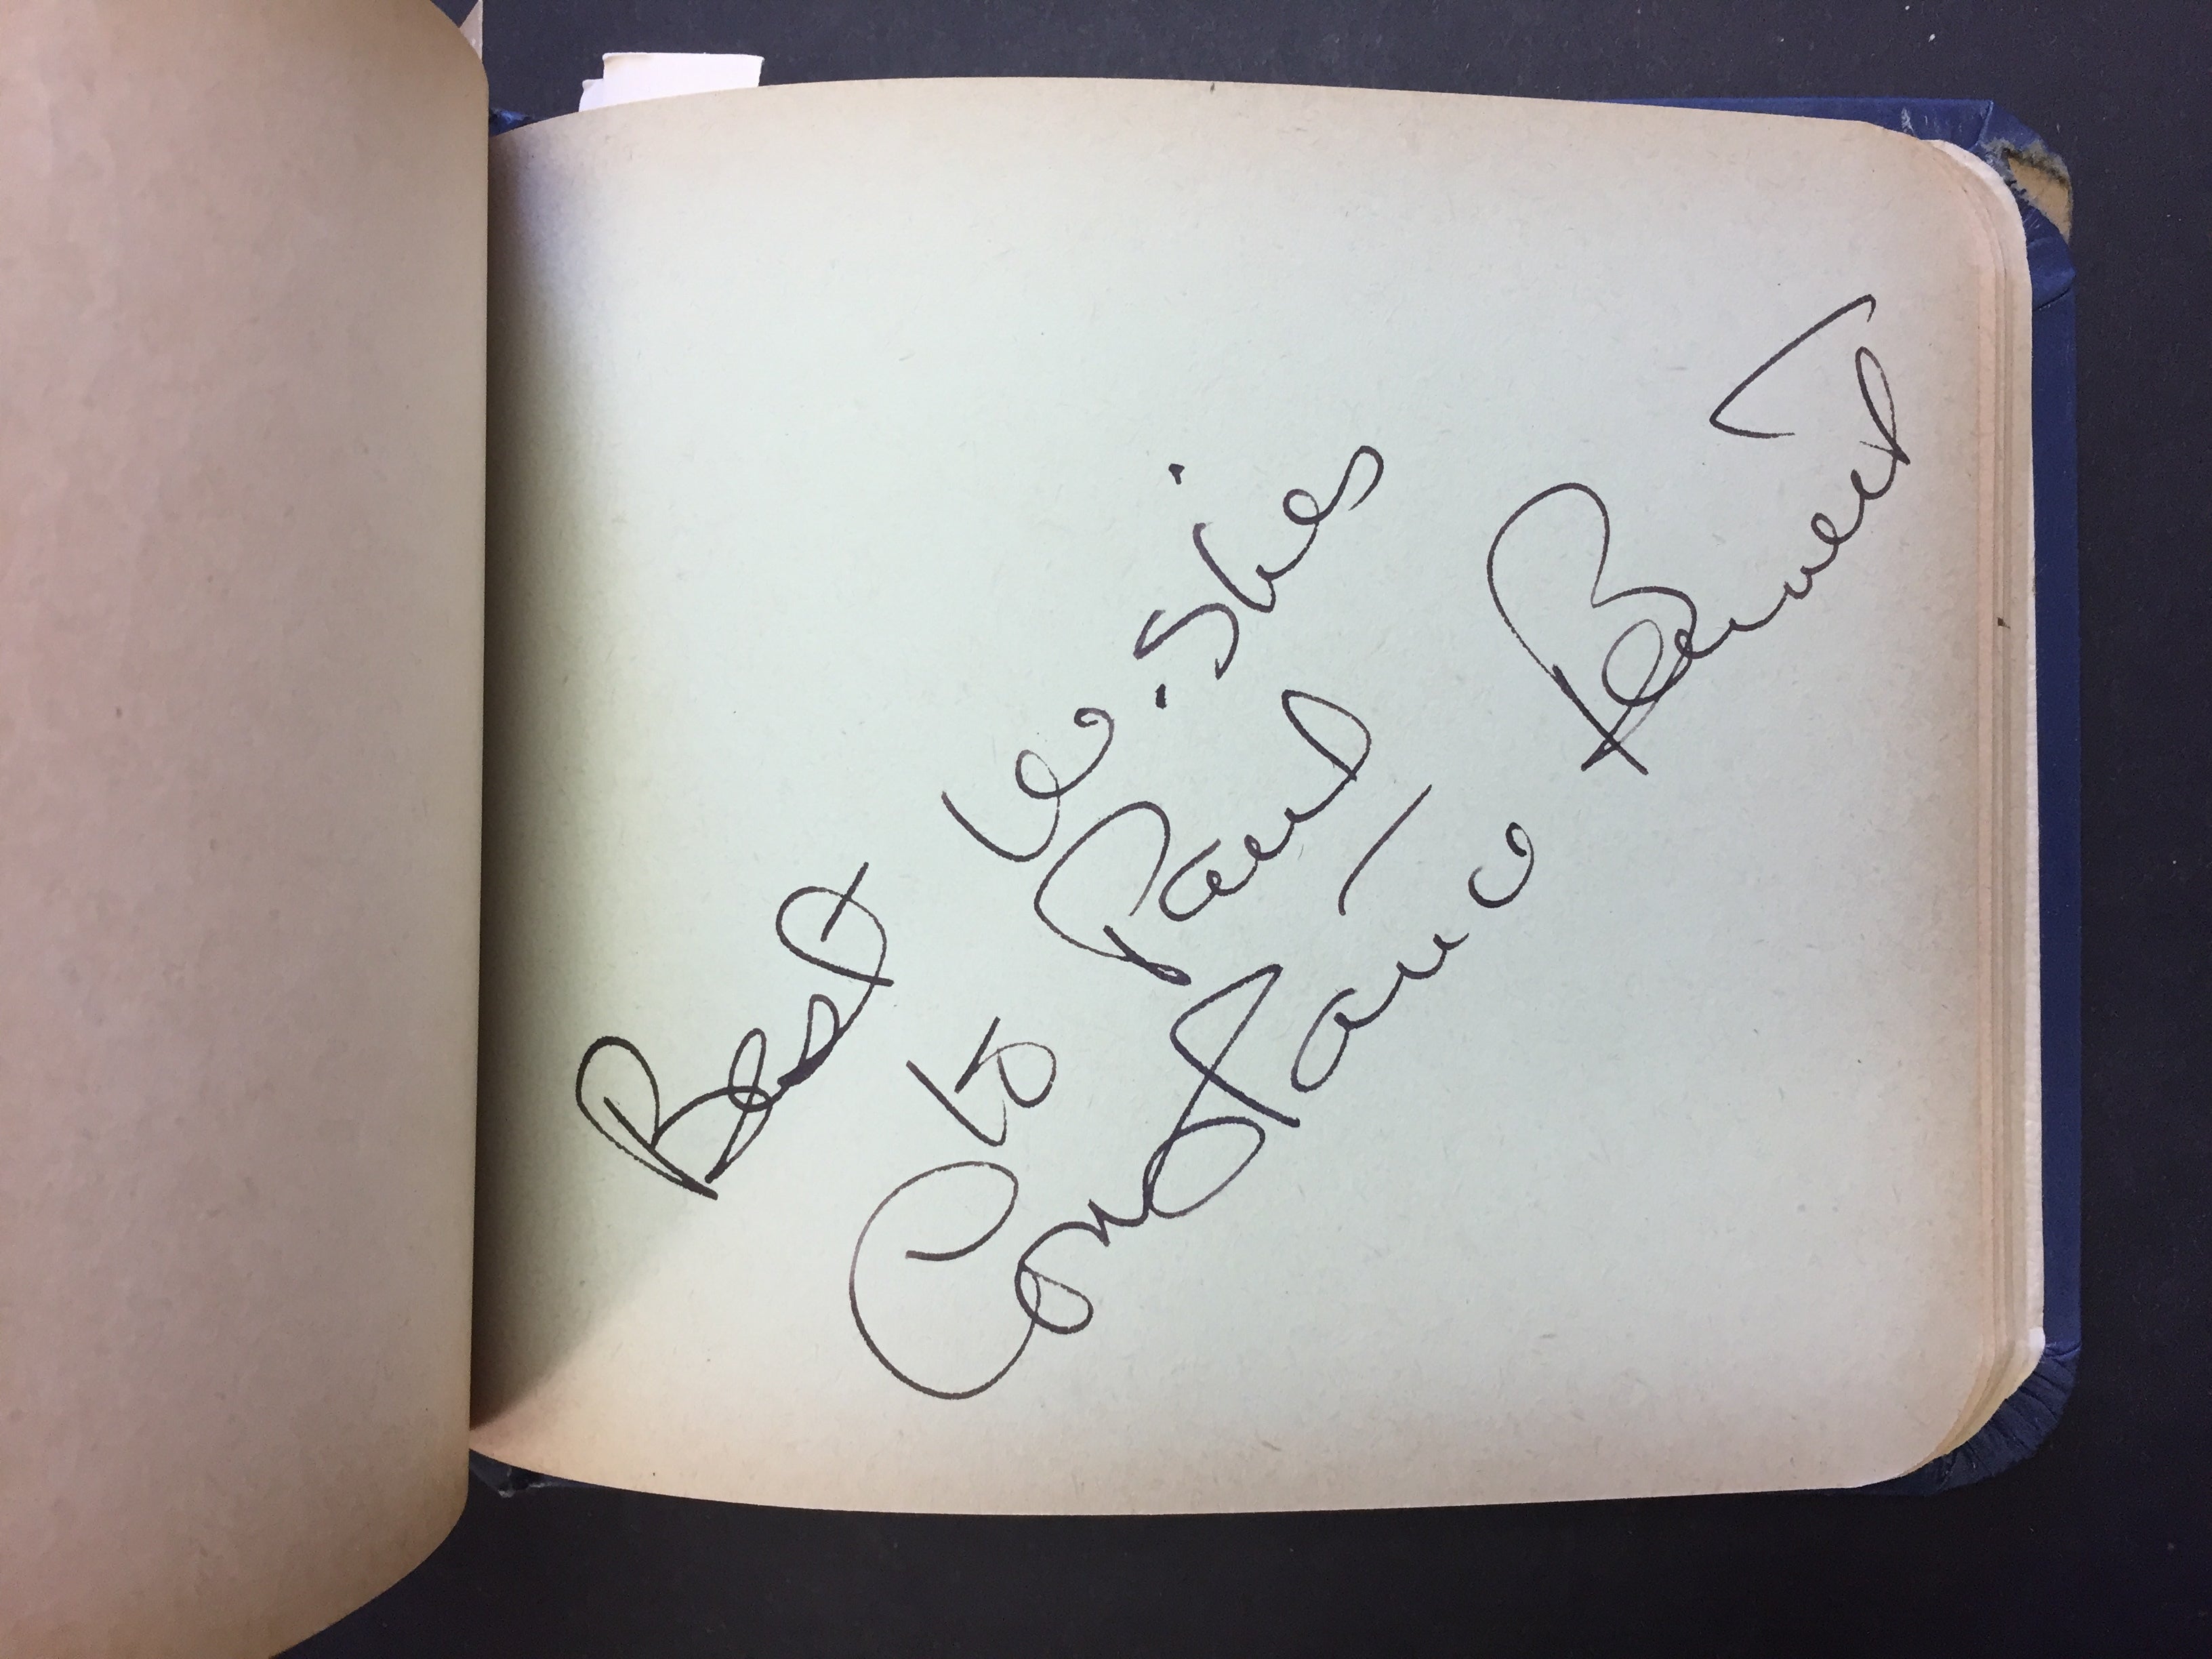 Best Wishes
to Paul
Constance Bennett